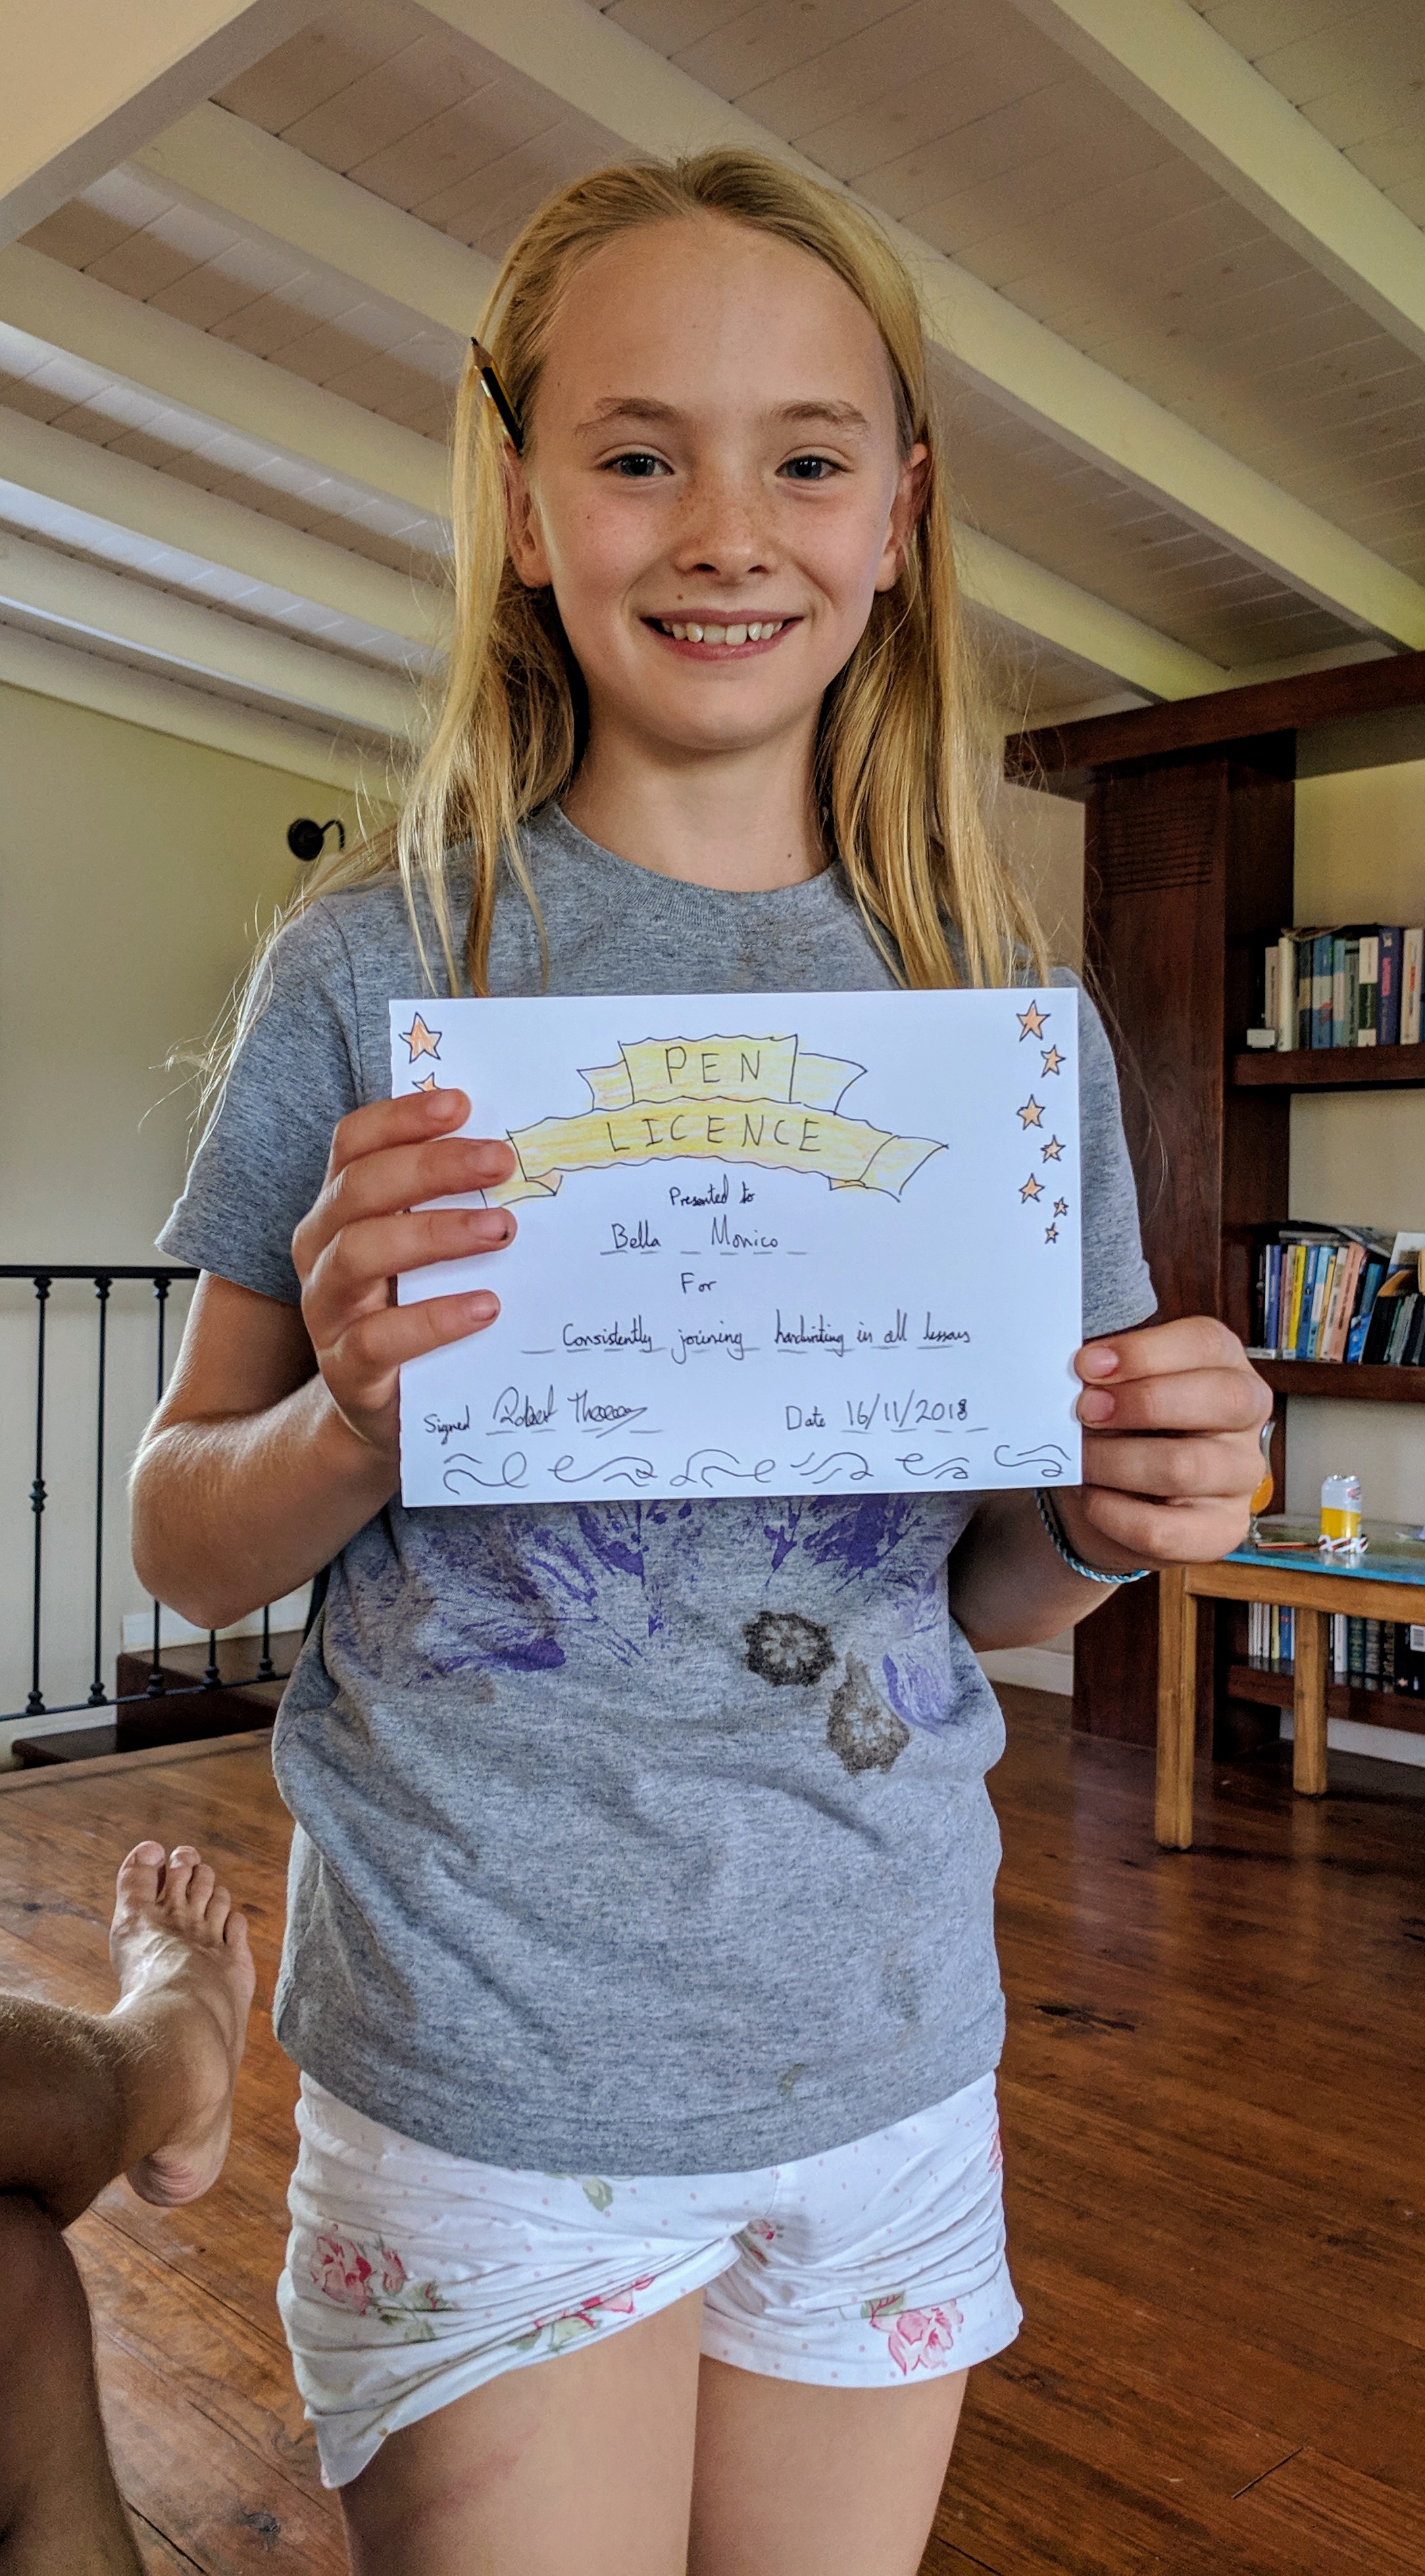 PEN
LICENCE
Presented to
Bella Monico
For
Consistently joining handwriting in all lessons
Signed Robert
Date 16/11/2018